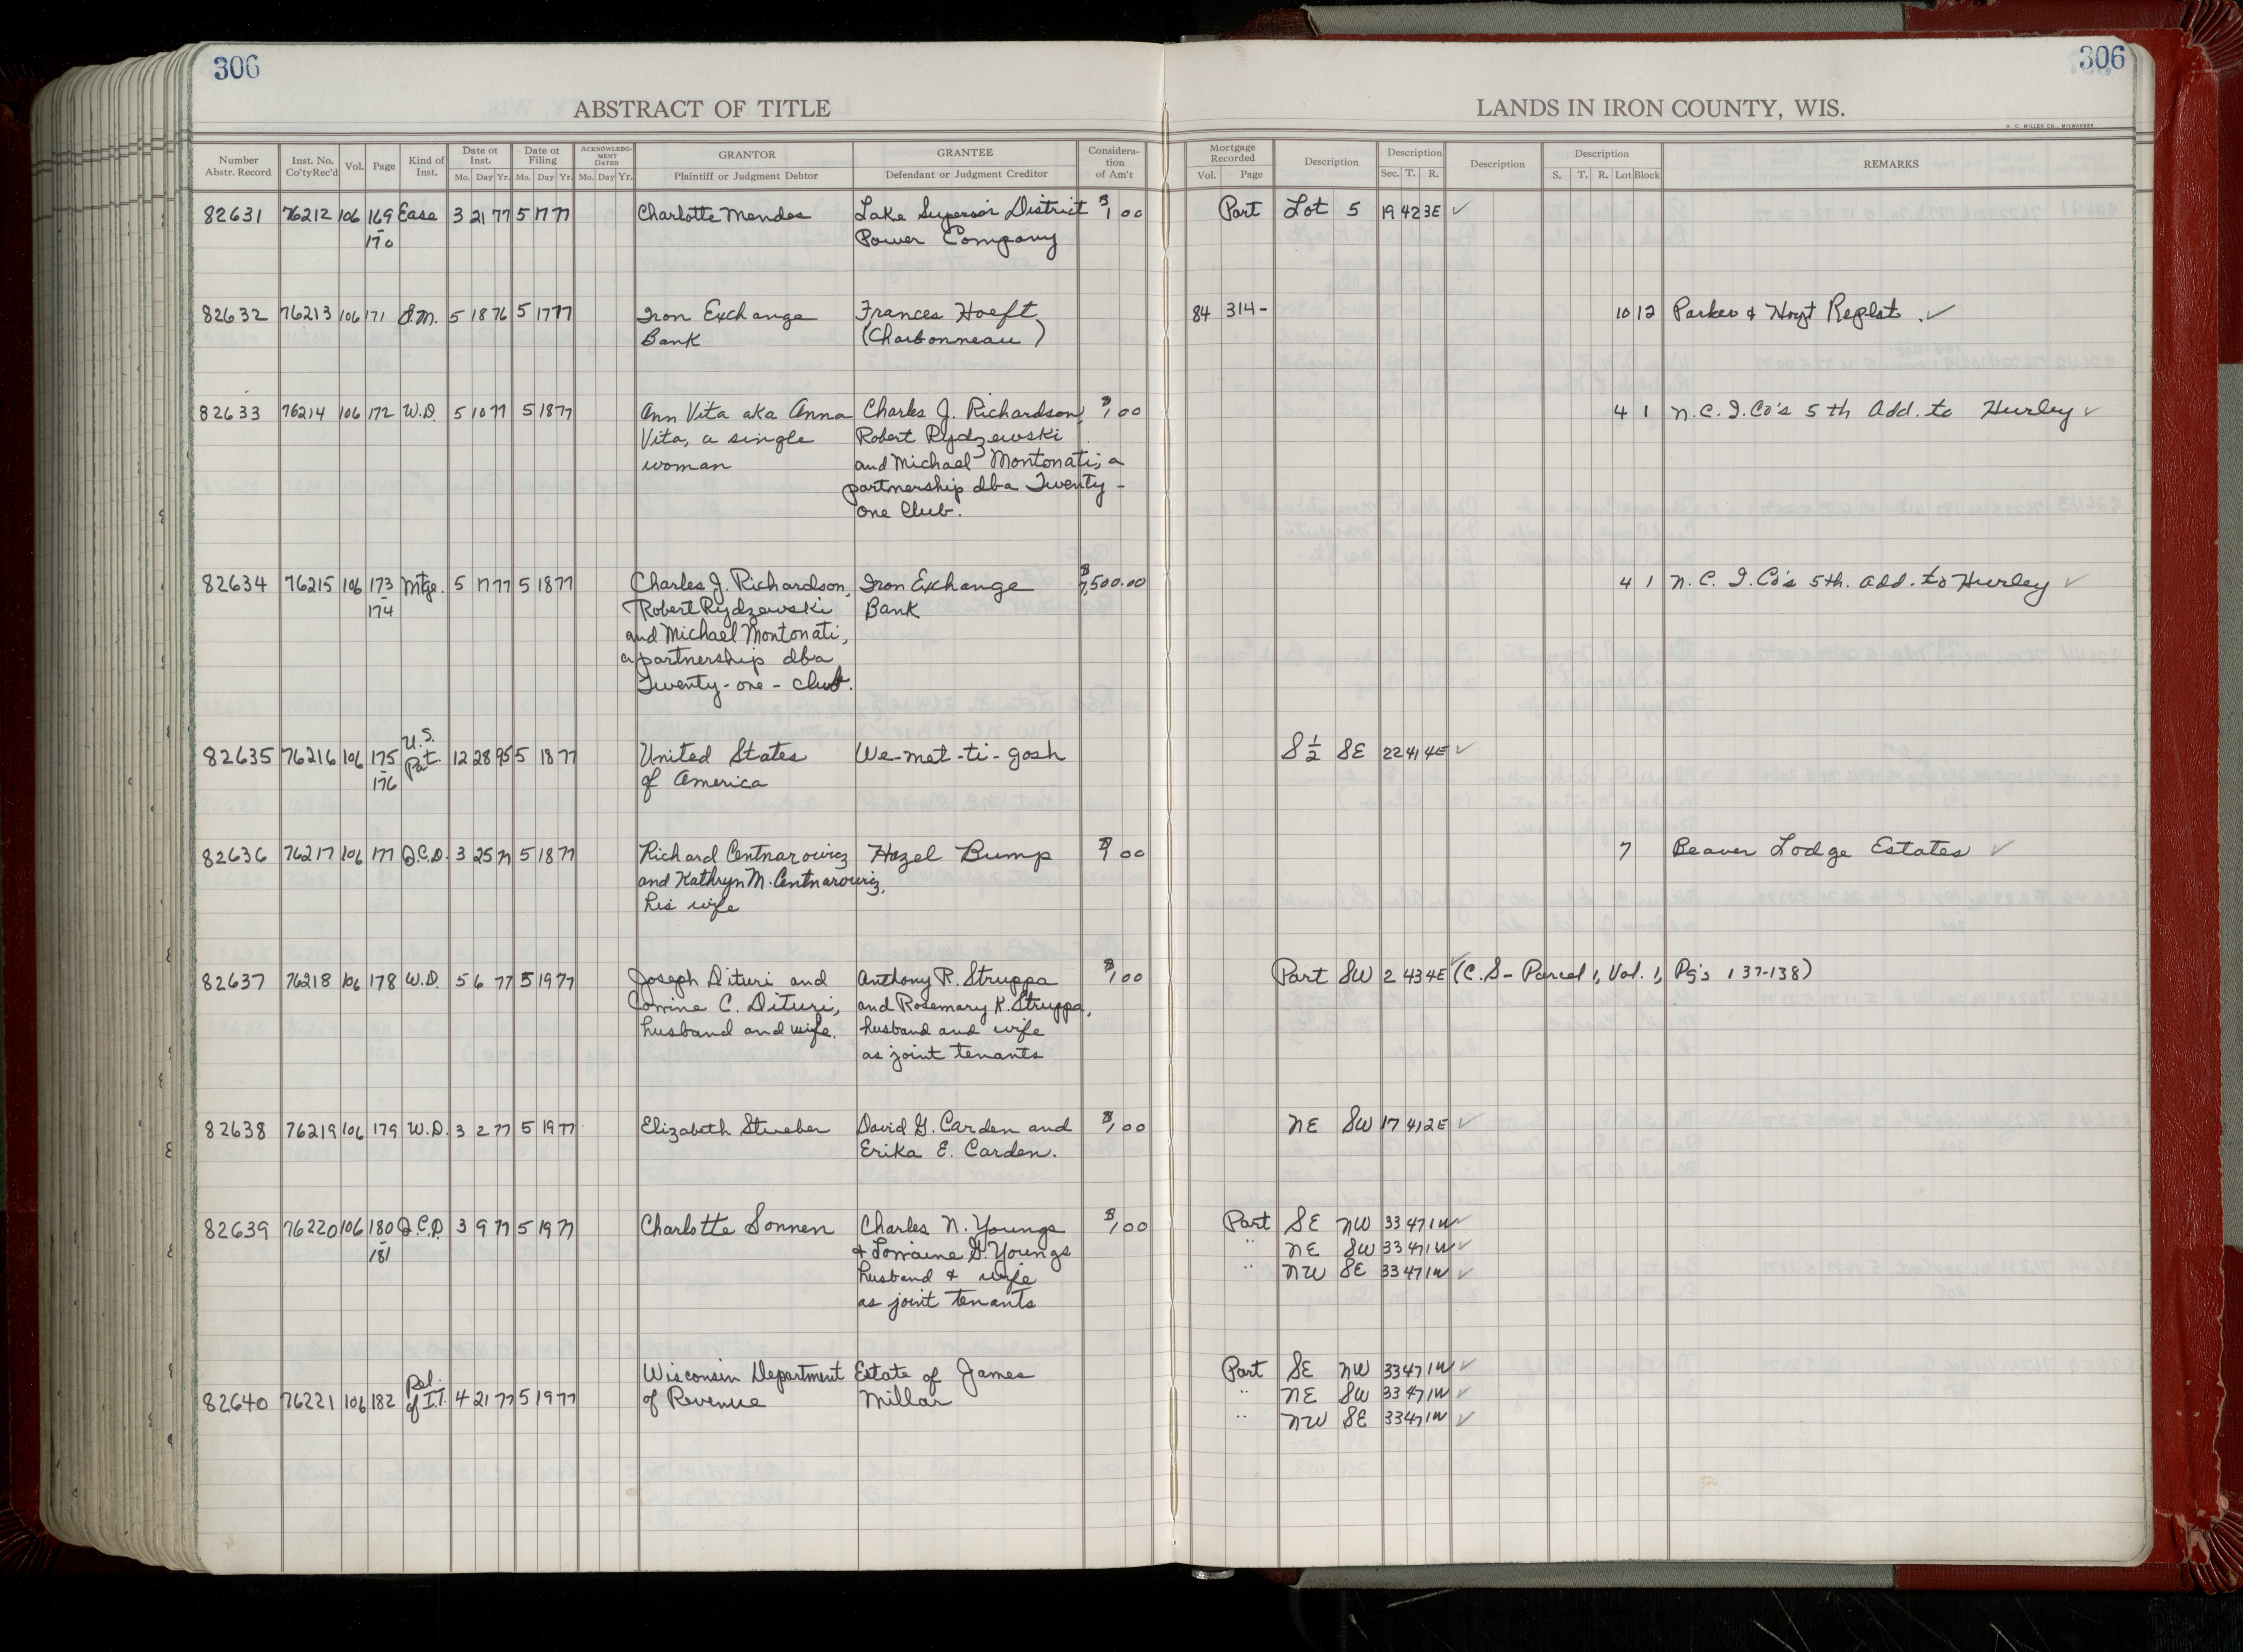 306
306
ABSTRACT OF TITLE
LANDS IN IRON COUNTY, WIS.
H. C. MILLER CO., MILWAUKEE
Number Abstr. Record Inst. No. Co'ty Rec'd Vol. Page Kind of Inst. Date of Inst. Mo. Day Yr. Date of Filing Mo. Day Yr. ACKNOWLEDGMENT DATED Mo. Day Yr. GRANTOR Plaintiff or Judgment Debtor GRANTEE Defendant or Judgment Creditor Consideration of Am't Mortgage Recorded Vol. Page Description Description Sec. T. R. Description Description S. T. R. Lot Block REMARKS
82631 76212 106 169 Ease 3 21 77 5 17 77 Charlotte Mendes Lake Superior District $1.00 Part Lot 5 19 42 3E ✓
- 170 Power Company
82632 76213 106 171 S.M. 5 18 76 5 17 77 Iron Exchange Frances Hoeft 84 314- 10 12 Parker & Hoyt Replat. ✓
Bank (Charbonneau)
82633 76214 106 172 W.D. 5 10 77 5 18 77 Ann Vita aka Anna Charles J. Richardson, $1.00 4 1 N.C.I.Co's 5th Add. to Hurley ✓
Vita, a single Robert Rydzewski
woman and Michael Montonati, a
partnership dba Twenty-
one Club.
82634 76215 106 173 Mtge. 5 17 77 5 18 77 Charles J. Richardson, Iron Exchange $7,500.00 4 1 N.C.I.Co's 5th. Add. to Hurley ✓
- 174 Robert Rydzewski Bank
and Michael Montonati,
a partnership dba
Twenty-one-club.
82635 76216 106 175 U.S. Pat. 12 28 95 5 18 77 United States We-met-ti-gosh S½ SE 22 41 4E ✓
- 176 of America
82636 76217 106 177 Q.C.D. 3 25 77 5 18 77 Richard Centnarowicz Hazel Bump $1.00 7 Beaver Lodge Estates ✓
and Kathryn M. Centnarowicz,
his wife
82637 76218 106 178 W.D. 5 6 77 5 19 77 Joseph Dituri and Anthony R. Struppa $1.00 Part SW 2 43 4E ✓ (C.S- Parcel 1, Vol. 1, Pg's 137-138)
Corrine C. Dituri, and Rosemary K. Struppa,
husband and wife. husband and wife
as joint tenants
82638 76219 106 179 W.D. 3 2 77 5 19 77 Elizabeth Strueber David G. Carden and $1.00 NE SW 17 41 2E ✓
Erika E. Carden.
82639 76220 106 180 Q.C.D. 3 9 77 5 19 77 Charlotte Sonnen Charles N. Youngs $1.00 Part SE NW 33 47 1W ✓
- 181 & Lorraine G. Youngs " NE SW 33 47 1W ✓
husband & wife " NW SE 33 47 1W ✓
as joint tenants
Wisconsin Department Estate of James Part SE NW 33 47 1W ✓
82640 76221 106 182 Rel. of I.T. 4 21 77 5 19 77 of Revenue Millar " NE SW 33 47 1W ✓
" NW SE 33 47 1W ✓